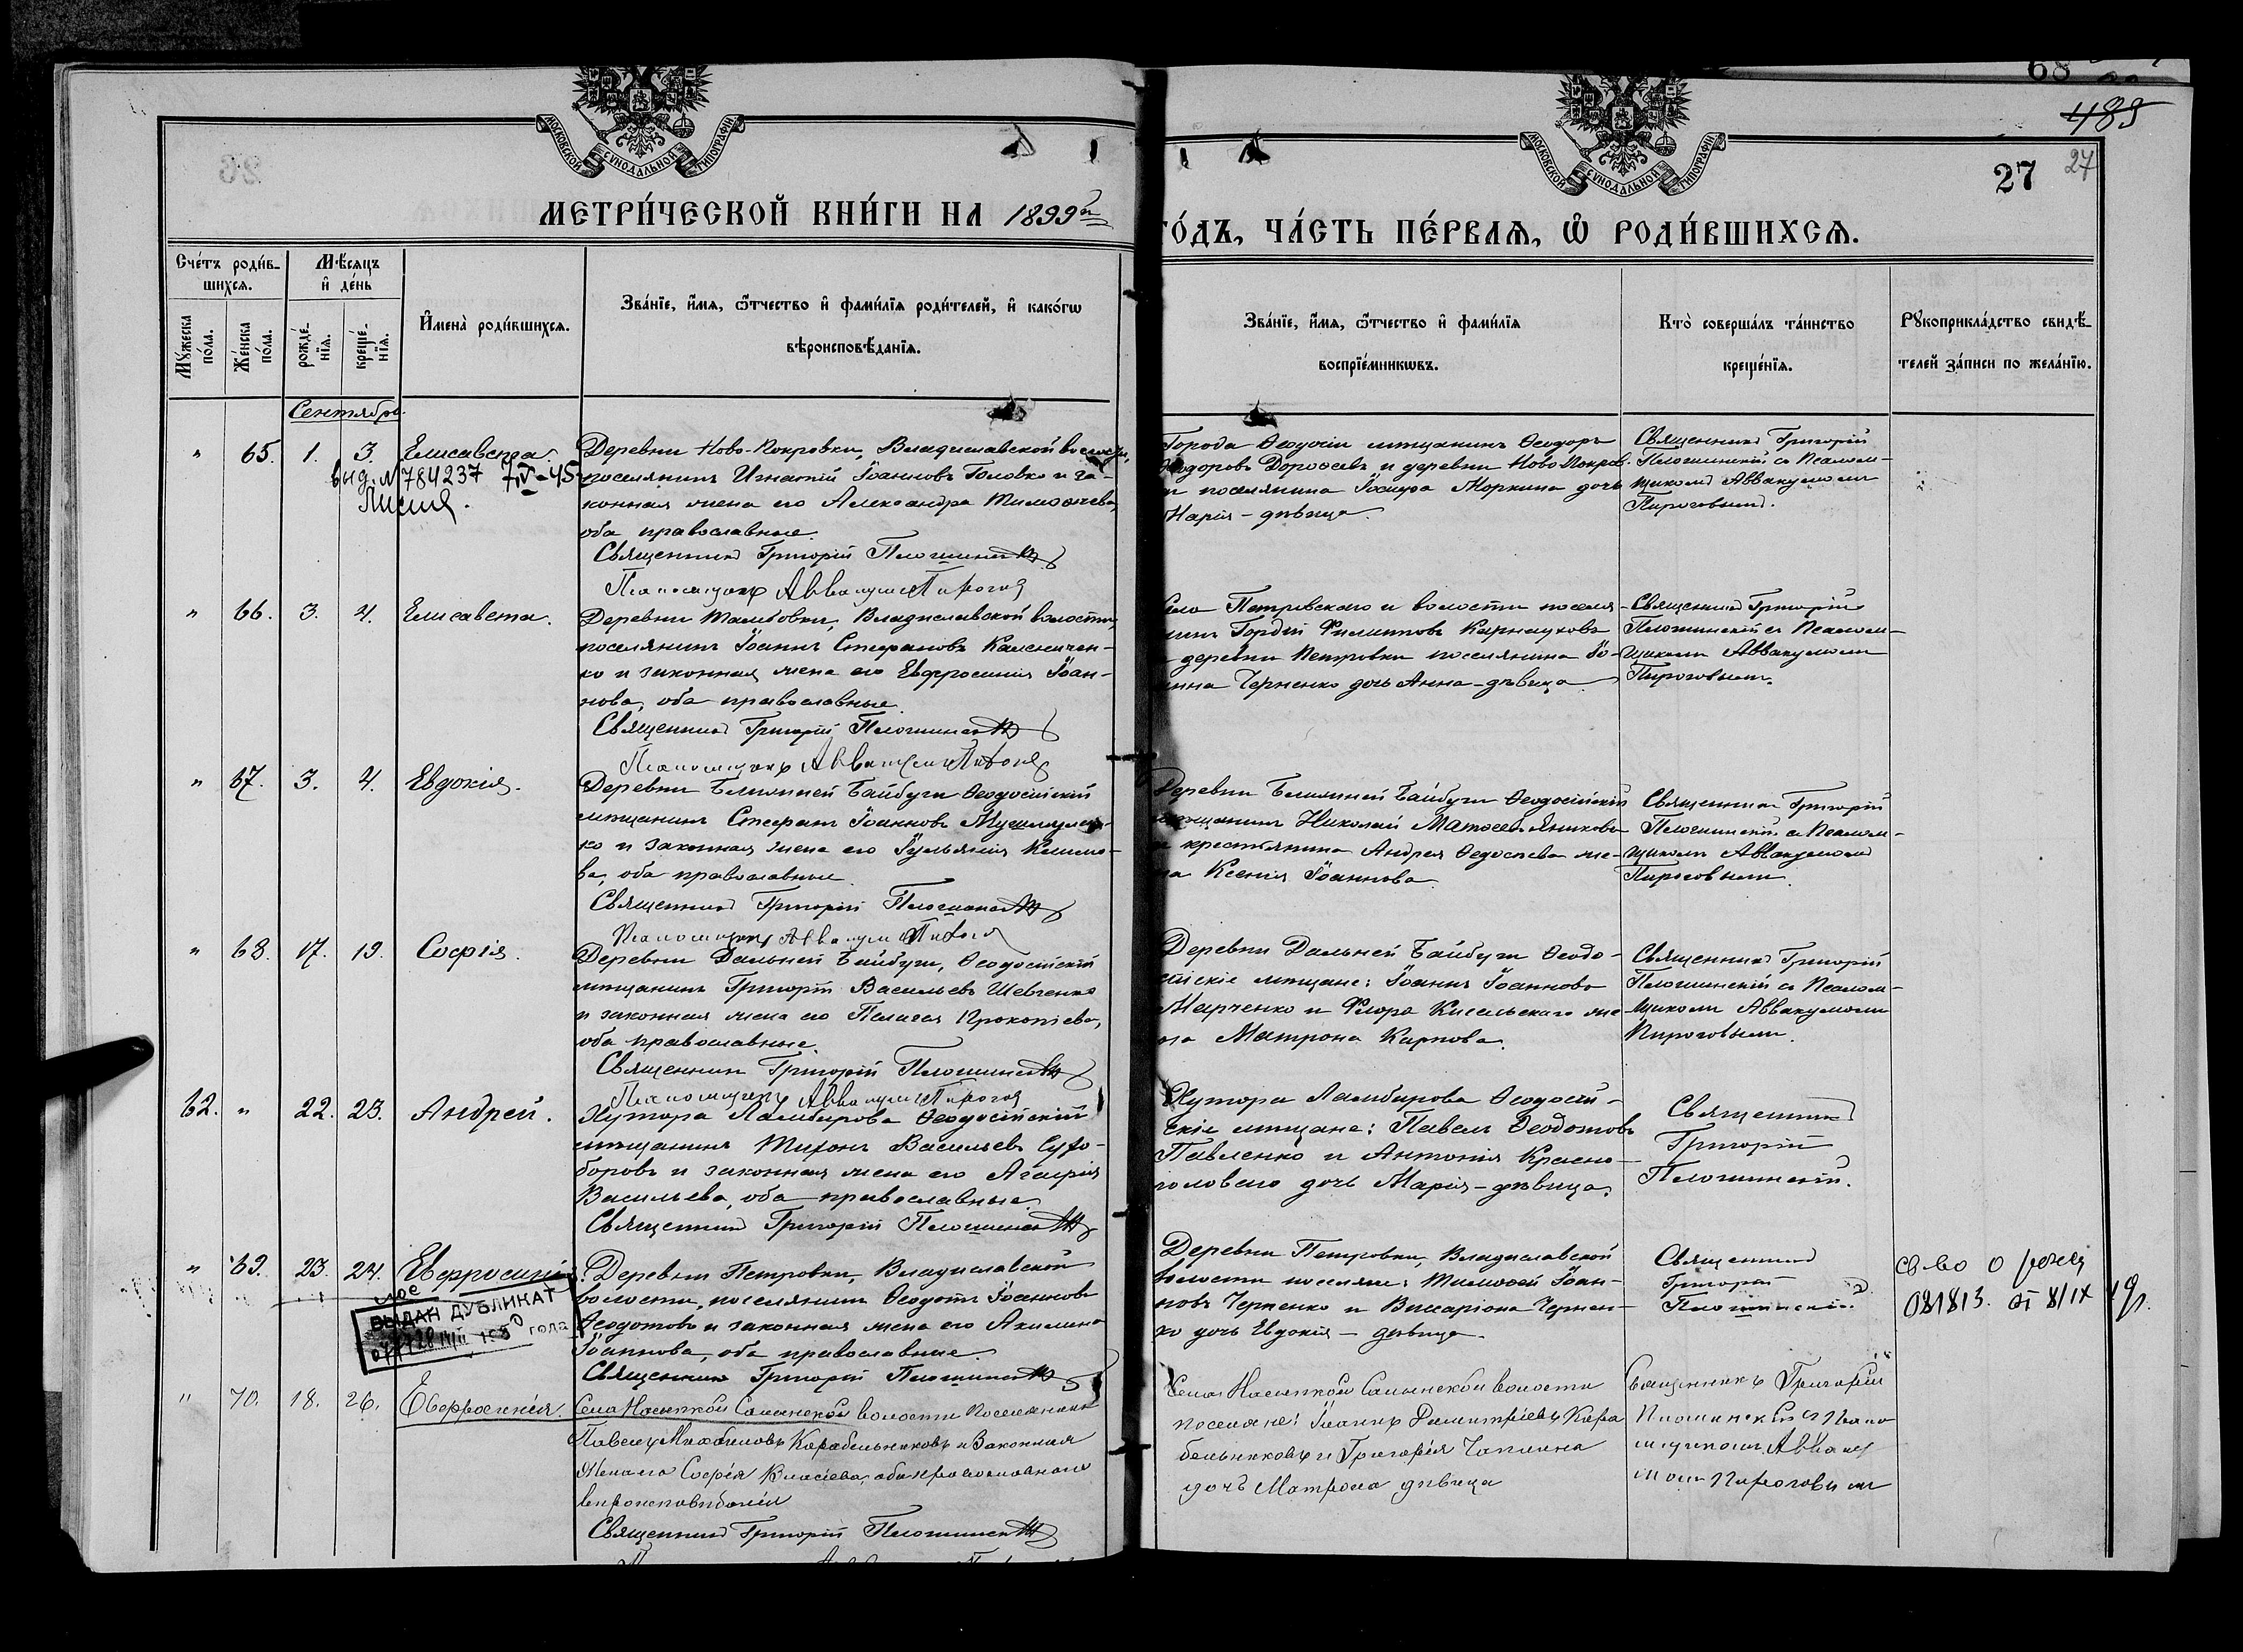 68
489
27
27
МОСКОВСКОЙ СѴНОДАЛЬНОЙ ТИПОГРАФІИ
МОСКОВСКОЙ СѴНОДАЛЬНОЙ ТИПОГРАФІИ
МЕТРИ́ЧЕСКОЙ КНИ́ГИ НА 1899й
ГО́ДЪ, ЧА́СТЬ ПЕ́РВАѦ, Ѡ РОДИ́ВШИХСѦ.
Сче́тъ роди́в-
шихсѧ.
Мѣ́сѧцъ
и҆ де́нь
Мꙋ́жеска
по́ла.
Же́нска
по́ла.
рожде́-
нїѧ.
креще́-
нїѧ.
И҆мена̀ роди́вшихсѧ.
Зва́нїе, и҆́мѧ, ѻ҆́тчество и҆ фами́лїѧ роди́телей, и҆ како́гѡ
вѣроисповѣ́данїѧ.
Зва́нїе, и҆́мѧ, ѻ҆́тчество и҆ фами́лїѧ
воспрїе́мникѡвъ.
Кто̀ соверша́лъ та́инство
креще́нїѧ.
Рꙋкоприкла́дство свидѣ́-
телей за́писи по жела́нїю.
Сентября
" 65. 1. 3. Елисавета.
выд. № 784237 7.V-45
Деревни Ново-Покровки, Владиславской волости,
поселянинъ Игнатій Іоанновъ Головко и за-
конная жена его Александра Тимоѳеева,
оба православные.
Священникъ Григорій
Псаломщикъ Аввакумъ Пирогов
Города Ѳеодосіи мѣщанинъ Ѳеодоръ
Ѳеодоровъ Дороѳеевъ и деревни Ново-Покров-
ки поселянина Іосифа Моркина дочь
Марія - дѣвица.
Священникъ Григорій
Плошинскій съ Псалом-
щикомъ Аввакумомъ
Пироговымъ.
" 66. 3. 4. Елисавета.
Деревни Тамбовки, Владиславской волости,
поселянинъ Іоаннъ Стефановъ Каленичен-
ко и законная жена его Евфросинія Іоан-
нова, оба православные.
Священникъ Григорій
Псаломщикъ Аввакумъ
Села Петровскаго и волости поселя-
нинъ Гордій Филипповъ Карнауховъ
и деревни Петровки поселянина Іо-
анна Черненко дочь Анна - дѣвица.
Священникъ Григорій
Плошинскій съ Псалом-
щикомъ Аввакумомъ
Пироговымъ.
" 67. 3. 4. Евдокія.
Деревни Ближней Байбуги Ѳеодосійскій
мѣщанинъ Стефанъ Іоанновъ
ко и законная жена его Іуліанія
ва, оба православные.
Священникъ Григорій
Псаломщикъ Аввакумъ
Деревни Ближней Байбуги Ѳеодосійскій
мѣщанинъ Николай Матѳеевъ Яниковъ
и крестьянина Андрея Ѳедосѣева же-
на Ксенія Іоаннова.
Священникъ Григорій
Плошинскій съ Псалом-
щикомъ Аввакумомъ
Пироговымъ.
" 68. 17. 19. Софія.
Деревни Дальней Байбуги, Ѳеодосійскій
мѣщанинъ Григорій Васильевъ Шевченко
и законная жена его Пелагея Прокопіева,
оба православные.
Священникъ Григорій
Псаломщикъ Аввакумъ Пирогов
Деревни Дальней Байбуги Ѳеодо-
сійскіе мѣщане: Іоаннъ Іоанновъ
Марченко и Флора Кисельскаго же-
на Матрона Карпова.
Священникъ Григорій
Плошинскій съ Псалом-
щикомъ Аввакумомъ
Пироговымъ.
62. " 22. 23. Андрей.
Хутора Ламбирова Ѳеодосійскій
мѣщанинъ Тихонъ Васильевъ Сухо-
боровъ и законная жена его Агафія
Васильева, оба православные.
Священникъ Григорій
Хутора Ламбирова Ѳеодосій-
скіе мѣщане: Павелъ Ѳеодотовъ
Павленко и Антонія Красно-
головаго дочь Марія - дѣвица.
Священникъ
Григорій
Плошинскій.
" 69. 23. 24. Евфросинія.
ВЫДАН ДУБЛИКАТ
года
Деревни Петровки, Владиславской
волости, поселянинъ Ѳеодотъ Іоанновъ
Ѳеодотовъ и законная жена его Акилина
Іоаннова, оба православные.
Священникъ Григорій
Деревни Петровки, Владиславской
волости поселяне: Тимоѳей Іоан-
новъ Черненко и Виссаріона Чернен-
ко дочь Евдокія - дѣвица.
Священникъ
Григорій
Плошинскій
св-во о рожд
081813. от 8/IX
" 70. 18. 26. Евфросинія.
Села Насыпкой Салынской волости поселянинъ
Павелъ Михайловъ Карабельниковъ и Законная
Жена его Софія Власіева, оба православнаго
вѣроисповѣданія
Священникъ Григорій
Села Насыпкой Салынской волости
поселяне: Іоаннъ Димитріевъ Кара
бельниковъ и Григорія Чаплина
дочь Матрона дѣвица
Священникъ Григорій
Плошинскій съ Псало
мщикомъ Авваку
момъ Пироговымъ